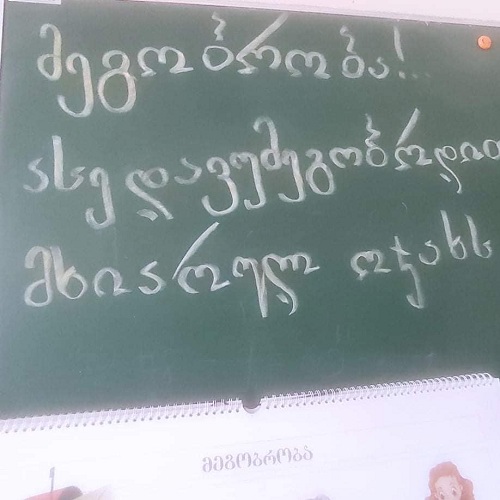 მეგობრობა!...
ასე დავუმეგობრდით
მხიარულ ოჯახს
მეგობრობა